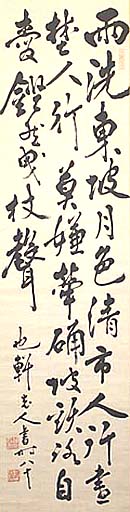 雨洗東坡月色清市人行盡
埜人行莫嫌犖确坡頭路自
愛鏗然曳杖聲
軒老人書